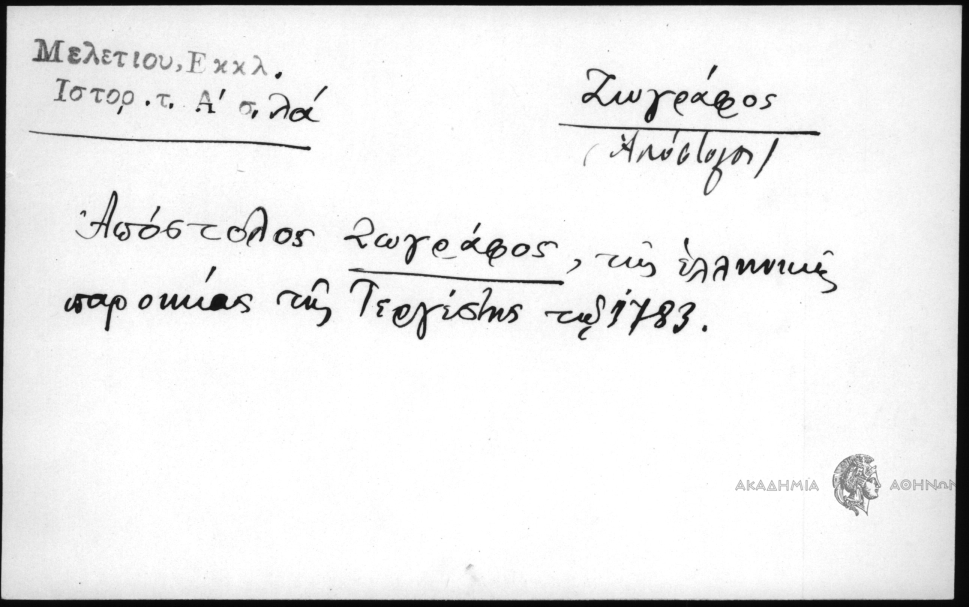 Μελετιου, Εκκλ.
Ιστορ. τ. Α' σ. λά
Ζωγράφος
(Ἀπόστολος)
Ἀπόστολος Ζωγράφος, τῆς ἑλληνικῆς
παροικίας τῆς Τεργέστης τῷ 1783.
ΑΚΑΔΗΜΙΑ ΑΘΗΝΩΝ